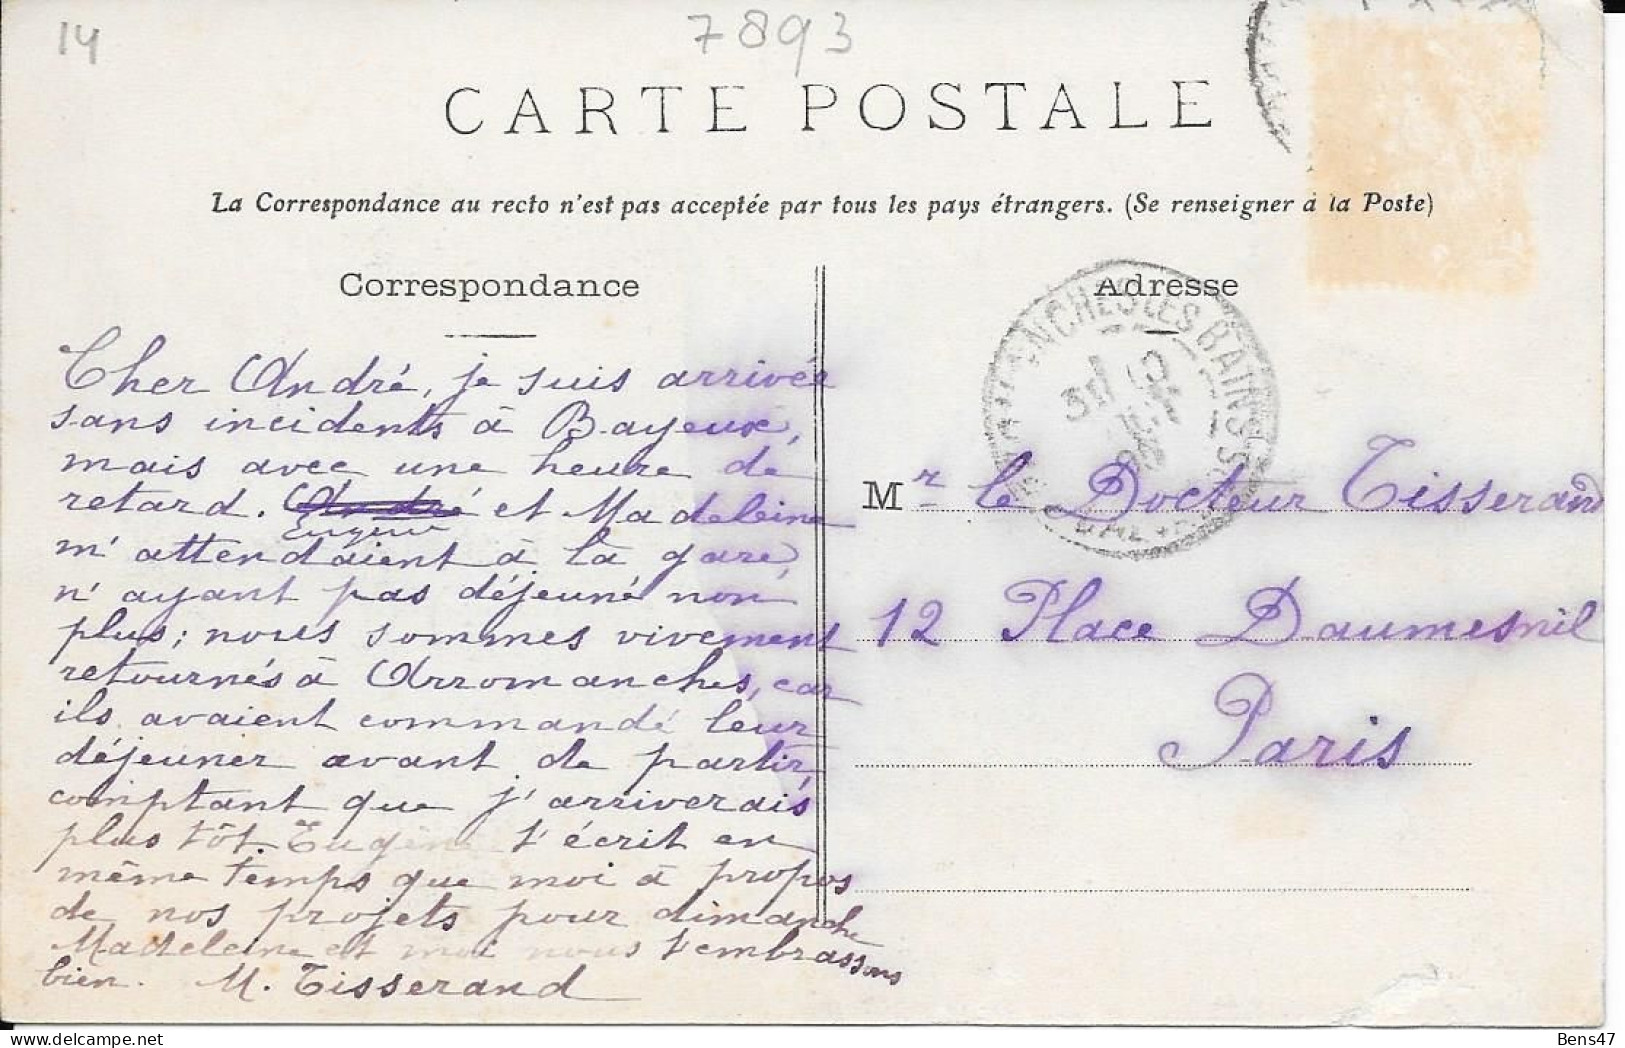 14
7893
CARTE POSTALE
La Correspondance au recto n'est pas acceptée par tous les pays étrangers. (Se renseigner à la Poste)
Correspondance
Cher André, je suis arrivée
sans incidents à Bayeux,
mais avec une heure de
retard. André et Madeleine
Eugène
m'attendaient à la gare,
n'ayant pas déjeuné non
plus; nous sommes vivement
retournés à Arromanches, car
ils avaient commandé leur
déjeuner avant de partir,
comptant que j'arriverais
plus tôt. Eugène t'écrit en
même temps que moi à propos
de nos projets pour dimanche
Madeleine et moi nous t'embrassons
bien. M. Tisserand
Adresse
NCHES LES BAINS
31
Mr le Docteur Tisserand
12 Place Daumesnil
Paris
Bens47